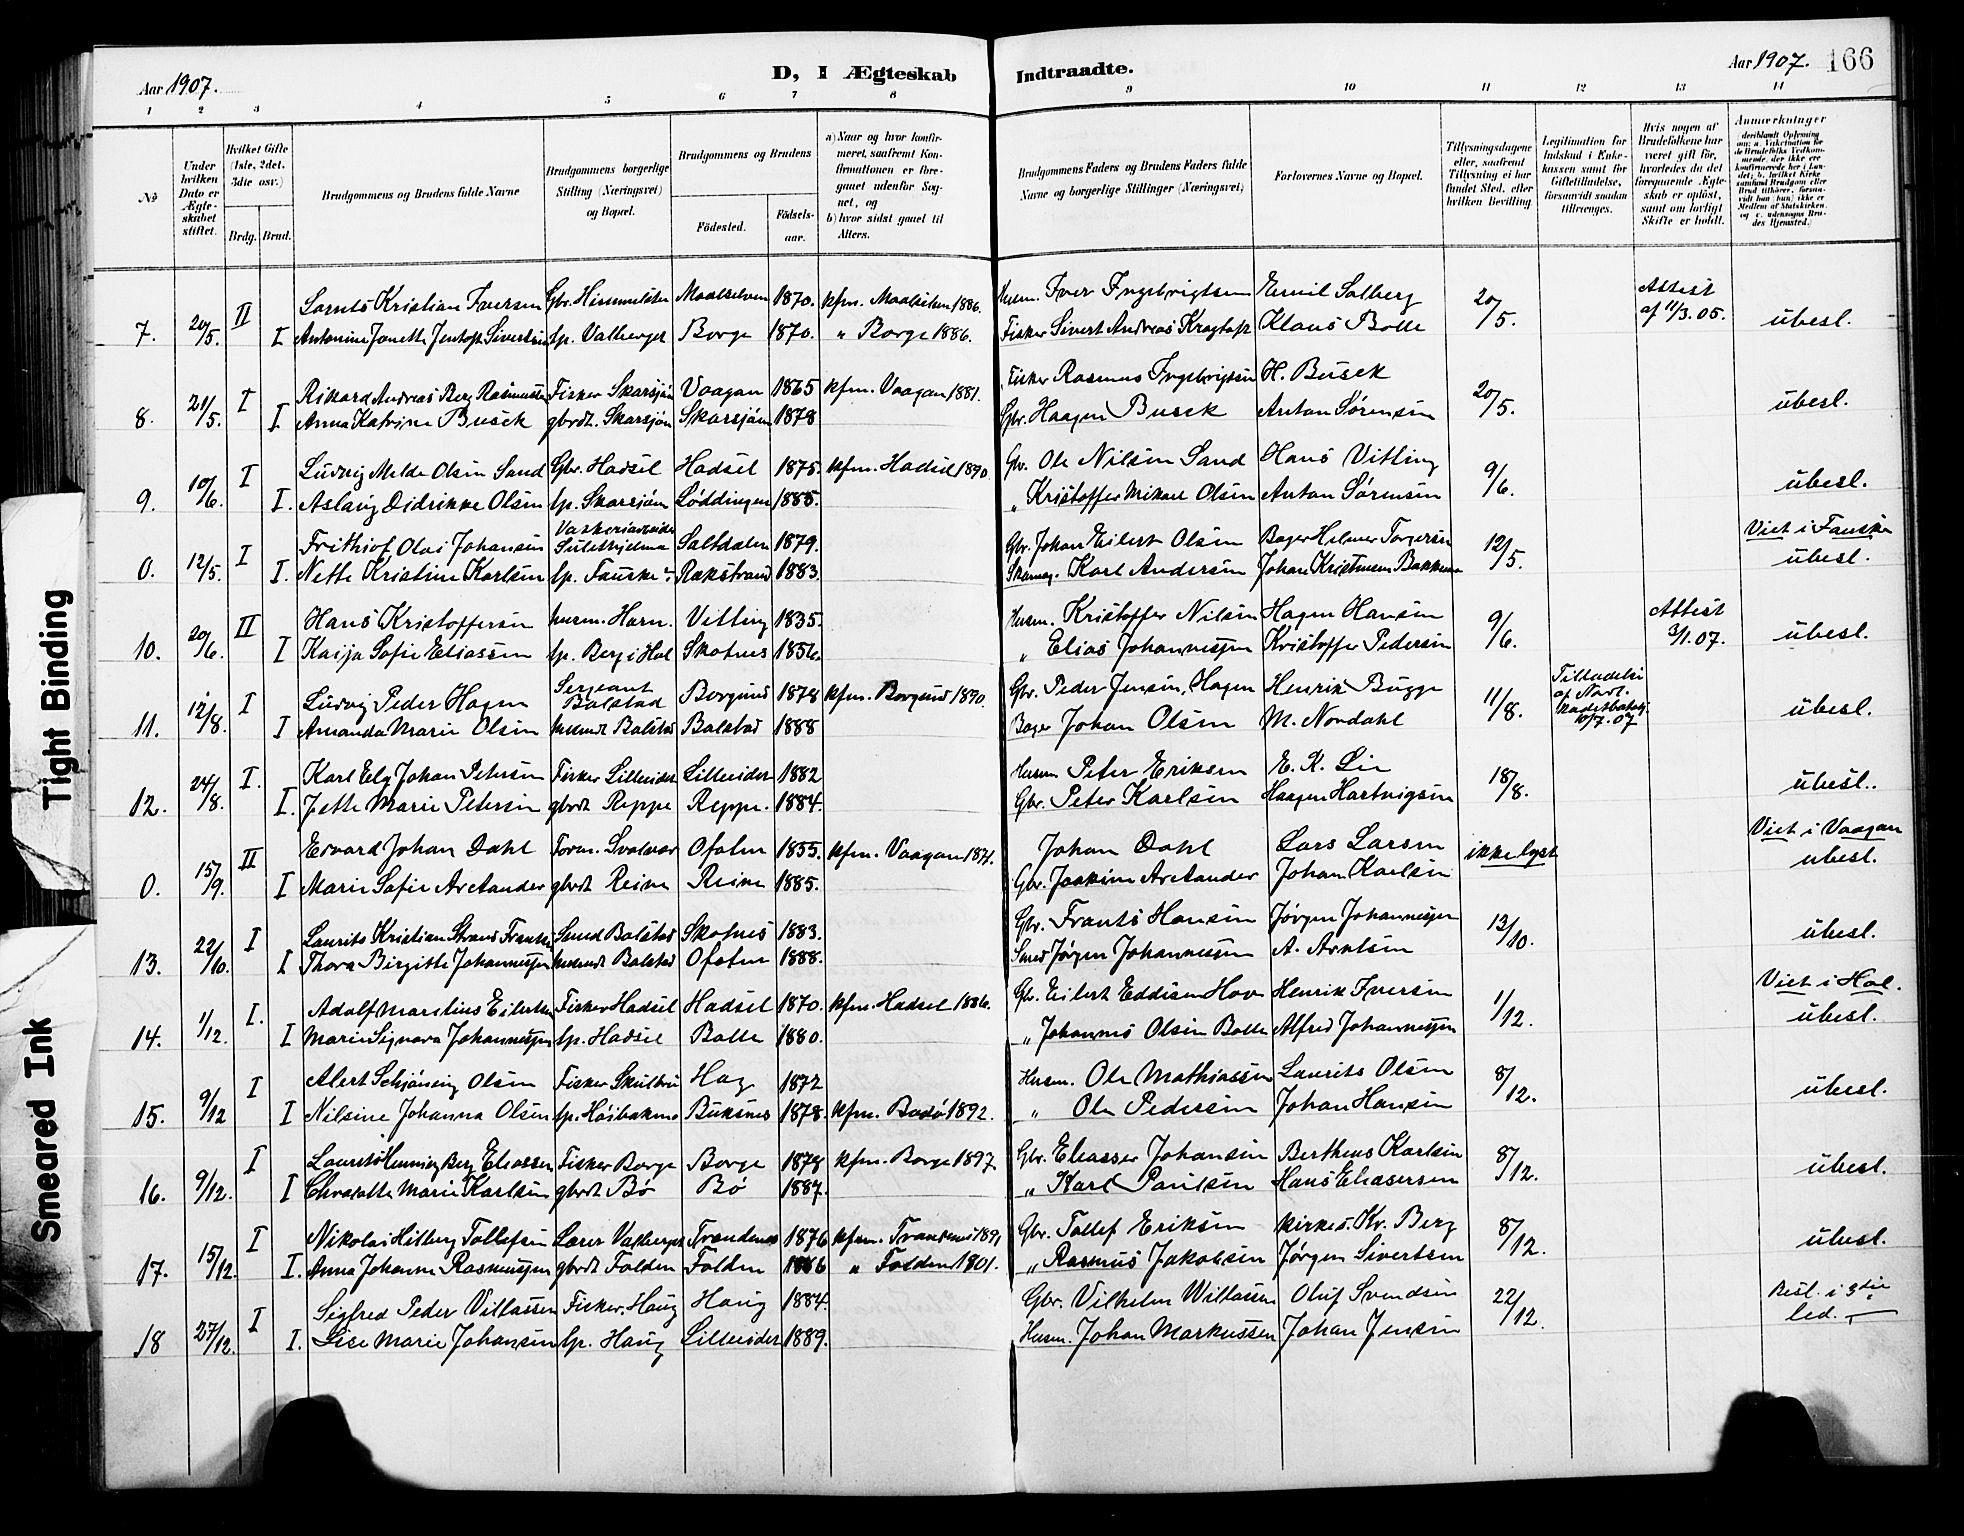 Aar 1907.
D, I Ægteskab Indtraadte.
Aar 1907. 166
1 2 3 4 5 6 7 8 9 10 11 12 13 14
No
Under hvilken Dato er Ægteskabet stiftet.
Hvilket Gifte (1ste, 2det, 3die osv.)
Brdg. Brud.
Brudgommens og Brudens fulde Navne
Brudgommens borgerlige Stilling (Næringsvei) og Bopæl.
Brudgommens og Brudens
Födested.
Födsels-aar.
a) Naar og hvor konfirmeret, saafremt Konfirmationen er foregaaet udenfor Sognet, og
b) hvor sidst gaaet til Alters.
Brudgommens Faders og Brudens Faders fulde Navne og borgerlige Stillinger (Næringsvei)
Forlovernes Navne og Bopæl.
Tillysningsdagene eller, saafremt Tillysning ei har fundet Sted, efter hvilken Bevilling
Legitimation for Indskud i Enkekassen samt for Giftetilladelse, forsaavidt saadan tiltrænges.
Hvis nogen af Brudefolkene har været gift før, hvorledes da det foregaaende Ægteskab er oplöst, samt om lovligt Skifte er holdt.
Anmærkninger
7. 20/5. II Kristian Iversen Gbr. Himmelsten Maalselven 1870. kfm. Maalselven 1886. Husm. Iver Ingebrigtsen Emil Solberg 20/5. Attest af 11/3.05.
I Antonine Janette Jentoft Sivertsen tp. Valberget Borge 1870. " Borge 1886. Fisker Sivert Andreas Klaus Bolle ubesl.
8. 21/5. I Rikard Andreas Berg Rasmussen Fisker Skarsjøn Vaagan 1865 kfm. Vaagan 1881. Fisker Rasmus Ingebrigtsen H. Busck 20/5.
I. Anna Katrine Busck gbrdt. Skarsjøn Skarsjøn 1878 Gbr. Haagen Busck Anton Sørensen ubesl.
9. 10/6. I Ludvig Melde Olsen Sand Gbr. Hadsel Hadsel 1875. kfm. Hadsel 1890. Gbr. Ole Nilsen Sand Hans Vitting 9/6.
I. Aslaug Didrikke Olsen tp. Skarsjøn Løddingen 1885. " Kristoffer Mikael Olsen Anton Sørensen ubesl.
0. 12/5. I Frithiof Olai Johansen Sulithjelma Saltdalen 1879. Gbr. Johan Eilert Olsen Bager Helmer Torgersen 12/5. Viet i Fauske
I. Nette Kristine Karlsen tp. Fauske Rækstrand 1883. Karl Andersen Johan Kristensen Bakken ubesl.
10. 20/6. II Hans Kristoffersen husm. Horn. Vitting 1835. Husm. Kristoffer Nilsen Hagen Hansen 9/6. Attest 3/1.07.
I Kaija Sofie Eliassen tp. Berg i Hol Skotnes 1856. " Elias Johannessen Kristoffer Pedersen ubesl.
11. 12/8. I Ludvig Peder Hagen Sergeant Balstad Borgund 1878 kfm. Borgund 1890. Gbr. Peder Jensen Hagen Henrik Bugge 11/8. Tilladelse af 10/7.07
I Amanda Marie Olsen Balstad Balstad 1888 Bager Johan Olsen M. Nordahl ubesl.
12. 24/8. I. Karl Johan Petersen Fisker Lilleeidet Lilleeidet 1882 Husm Peter Eriksen E. K. Lie 18/8.
I. Jette Marie Petersen gbrdt Reppe Reppe. 1884. Gbr. Peter Karlsen Haagen Hartvigsen ubesl.
0. 15/9. II Edvard Johan Dahl Svolvær Ofoten 1855. kfm. Vaagan 1871. Johan Dahl Lars Larsen ikke lyst Viet i Vaagan
I Marie Sofie Arctander gbrdt Reine Reine 1885. Gbr. Joakim Arctander Johan Karlsen ubesl.
13. 22/10. I Laurits Kristian Strand Frantsen Smed Balstad Skotnes 1883. Gbr. Frants Hansen Jørgen Johannessen 13/10.
I Thora Birgitte Johannessen Balstad Ofoten 1888. Smed Jørgen Johannessen A. Arntsen ubesl.
14. 1/12. I. Adolf Martius Eilertsen Fisker Hadsel Hadsel 1870. kfm. Hadsel 1886. Gbr. Eilert Eddisen Hov Henrik Iversen 1/12. Viet i Hol.
I Marie Signora Johannessen tp. Hadsel Bolle 1880. " Johannes Olsen Bolle Alfred Johannessen ubesl.
15. 9/12 I Alert Schjöning Olsen Fisker Skulbru Hag 1872 Husm. Ole Mathiassen Laurits Olsen 8/12.
I Nilsine Johanna Olsen tp. Höibakmo Buksnes 1878. kfm. Bodö 1892. " Ole Pedersen Johan Hansen ubesl.
16. 9/12. I Laurits Henning Berg Eliassen Fisker Borge Borge 1878 kfm. Borge 1897. Gbr. Eliasser Johansen Bertheus Karlsen 8/12.
I Marie Karlsen gbrdt Bö Bö 1887. " Karl Paulsen Hans Eliasersen ubesl.
17. 15/12. I Nikolai Hilberg Tollefsen Lærer Valberget Trondenes 1876 kfm. Trondenes 1891 Gbr. Tollef Eriksen Kirkes. Kr. Berg 8/12.
I. Anna Johanne Rasmussen gbrdt Folden Folden 1886 " Folden 1901. " Rasmus Jakobsen Jørgen Sivertsen ubesl.
18 27/12. I Sigfred Peder Villassen Fisker, Haug Haug 1884. Gbr. Vilhelm Willassen Oluf Svendsen 22/12. Besl. i 3die led.
I. Lise Marie Johansen tp. Haug Lilleeidet 1889. Husm. Johan Markussen Johan Jensen
Tight Binding
Smeared Ink